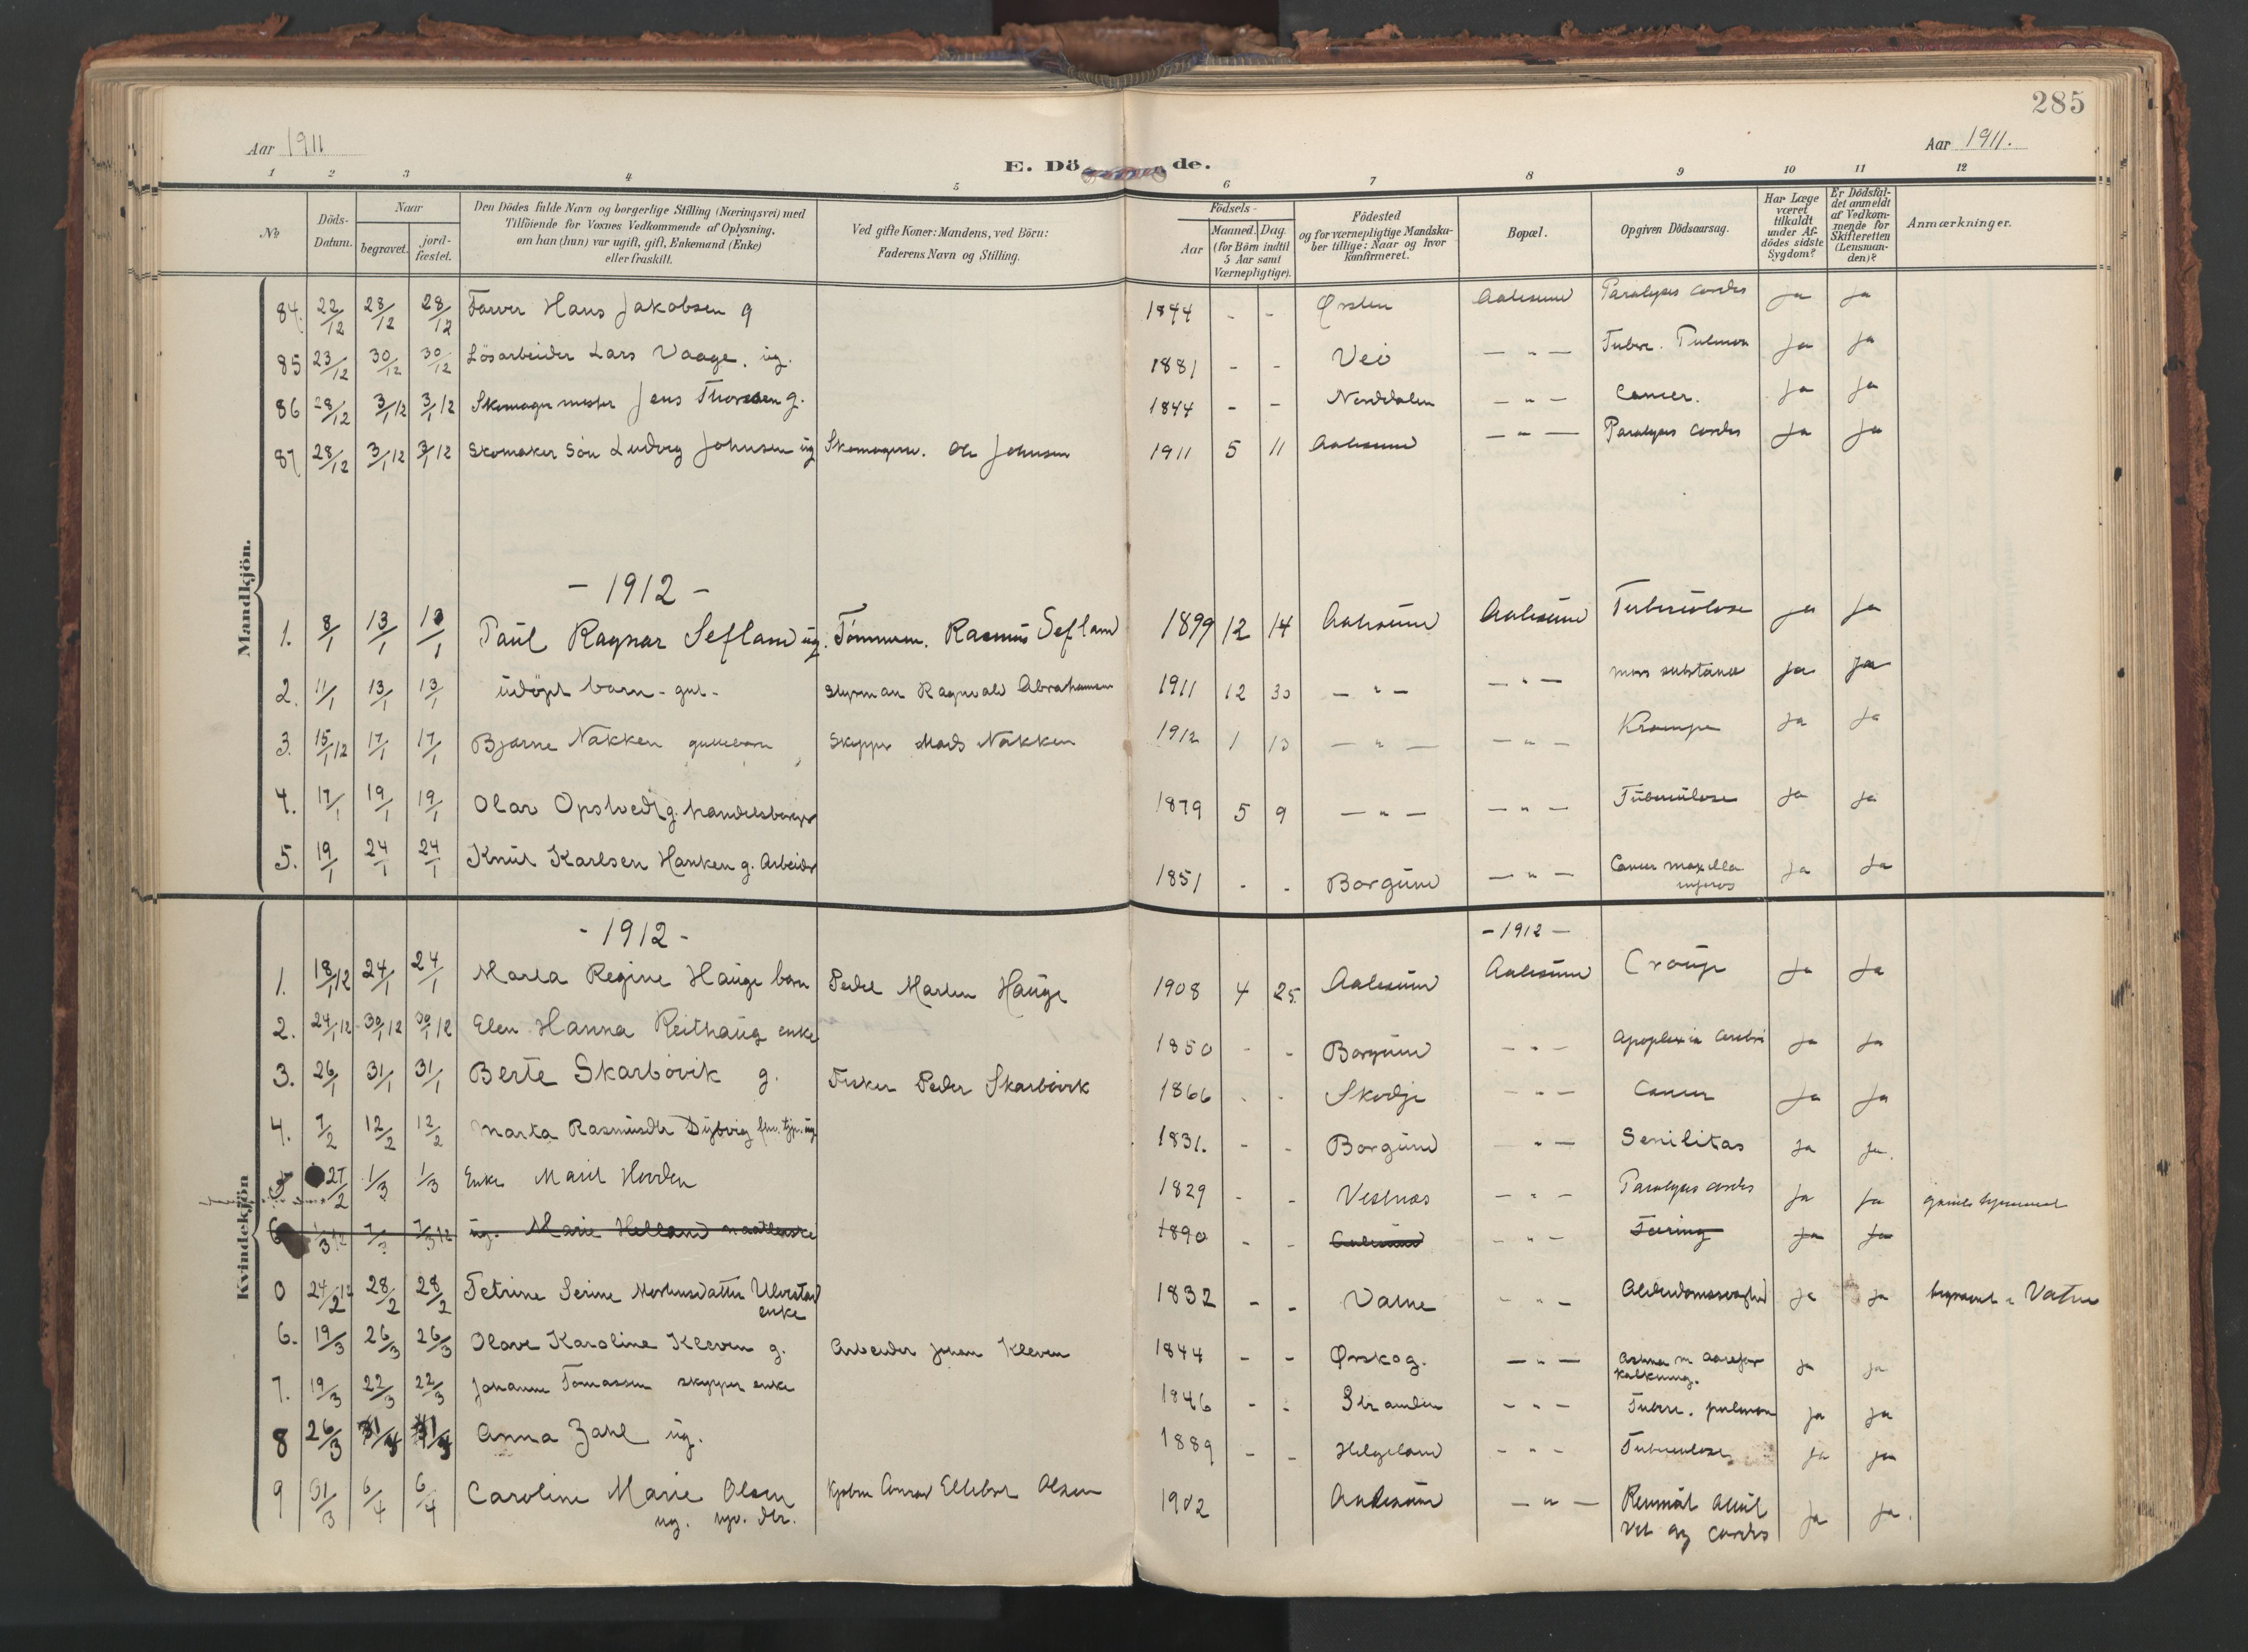 285
Aar 1911
Aar 1911.
E. Dö de.
1 2 3 4 5 6 7 8 9 10 11 12
No
Döds-Datum.
Naar
begravet. jord-fæstet.
Den Dödes fulde Navn og borgerlige Stilling (Næringsvei) med
Tilföiende for Voxnes Vedkommende af Oplysning,
om han (hun) var ugift, gift, Enkemand (Enke)
eller fraskilt.
Ved gifte Koner: Mandens, ved Börn:
Faderens Navn og Stilling.
Födsels-
Aar
Maaned. Dag.
(for Börn indtil
5 Aar samt
Værnepligtige).
Födested
og for værnepligtige Mandska-
ber tillige: Naar og hvor
konfirmeret.
Bopæl.
Opgiven Dödsaarsag.
Har Læge
været
tilkaldt
under Af-
dödes sidste
Sygdom?
Er Dödsfal-
det anmeldt
af Vedkom-
mende for
Skifteretten
(Lensman-
den)?
Anmærkninger.
Mandkjön.
84. 22/12 28/12 28/12 Farver Hans Jakobsen g 1844 - - Ørsten Aalesund Paralysis cordis ja ja
85 23/12 30/12 30/12 Lösarbeider Lars Vaage. ug. 1881 - - Veö — " — Tuberc. Pulmon ja ja
86 28/12 3/1 12 3/1 12 Skomagermester Jens Thorsen g. 1844 - - Norddalen — " — Cancer. ja ja
87 28/12 3/1 12 3/1 12 Skomaker Sön Ludvig Johnsen ug Skomagerm. Ole Johnsen 1911 5 11 Aalesund — " — Paralysis cordis ja ja
- 1912 -
1. 8/1 13/1 13/1 Paul Ragnar Sefland ug. Tömmerm. Rasmus Sefland 1899 12 14 Aalesund Aalesund Tuberculose ja ja
2. 11/1 13/1 13/1 udöpt barn - gut - Styrman Ragnvald Abrahamsen 1911 12 30 — " — — " — ja ja
3. 15/1 12 17/1 17/1 Bjarne Nakken guttebarn Skipper Mads Nakken 1912 1 10 — " — — " — Krampe ja ja
4. 17/1 19/1 19/1 Olav Opstvedt g. handelsborger 1879 5 9 — " — — " — Tuberculose ja ja
5. 19/1 24/1 24/1 Knut Karlsen Hanken g. Arbeider 1851 - - Borgund — " — Cancer maxilla ja ja
Kvindekjön
- 1912 -
- 1912 -
1. 18/1 12 24/1 24/1 Marta Regine Hauge barn Peder Martin Hauge 1908 4 25. Aalesund Aalesund Croup ja ja
2. 24/1 12 30/1 12 30/1 12 Elen Hanna Reithaug enke 1850 - - Borgund — " — Apoplexia cerebri ja ja
3. 26/1 31/1 31/1 Berte Skarbövik g. Fisker Peder Skarbövik 1866 - - Skodje — " — Cancer ja ja
4. 7/2 12/2 12/2 Marta Rasmusdtr Dybvig ug 1831. - - Borgund — " — Senilitas ja ja.
5 27/2 1/3 1/3 Enke Marit Hovden 1829 - - Vestnes — " — Paralysis cordis ja ja
6 1/3 12 7/3 7/3 12 ug. Marie Helland 1890 - - Aalesund — " — Tæring ja ja
0 24/2 12 28/2 28/2 Petrine Serine Mortensdatter Ulvestad
enke 1832 - - Vatne — " — Alderdomssvaghed ja ja begravet i Vatne
6. 19/3 26/3 26/3 Olave Karoline Kleven g. Arbeider Johan Kleven 1844 - - Ørskog. — " — Astma m aarefor
kalkning. ja ja
7. 19/3 22/3 22/3 Johanne Tomassen skipper enke 1846 - - Stranden — " — Tuberc. pulmon ja ja
8 26/3 Anna Zahl ug. 1889 - - Helgeland — " — Tuberculose ja ja
9 31/3 6/4 6/4 Caroline Marie Olsen Kjöbm Conrad Ellebert Olsen 1902 Aalesund — " — Reumat
ug. dtr. cordis ja ja.